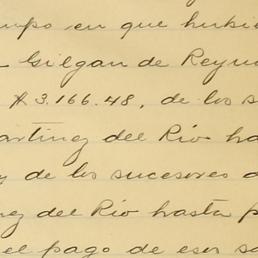 mpo en que hubi
Gilgan de Reyn
$3.166.48, de los s
artinez del Rio ha
y de los sucesores d
ez del Rio hasta p
el pago de esos sa